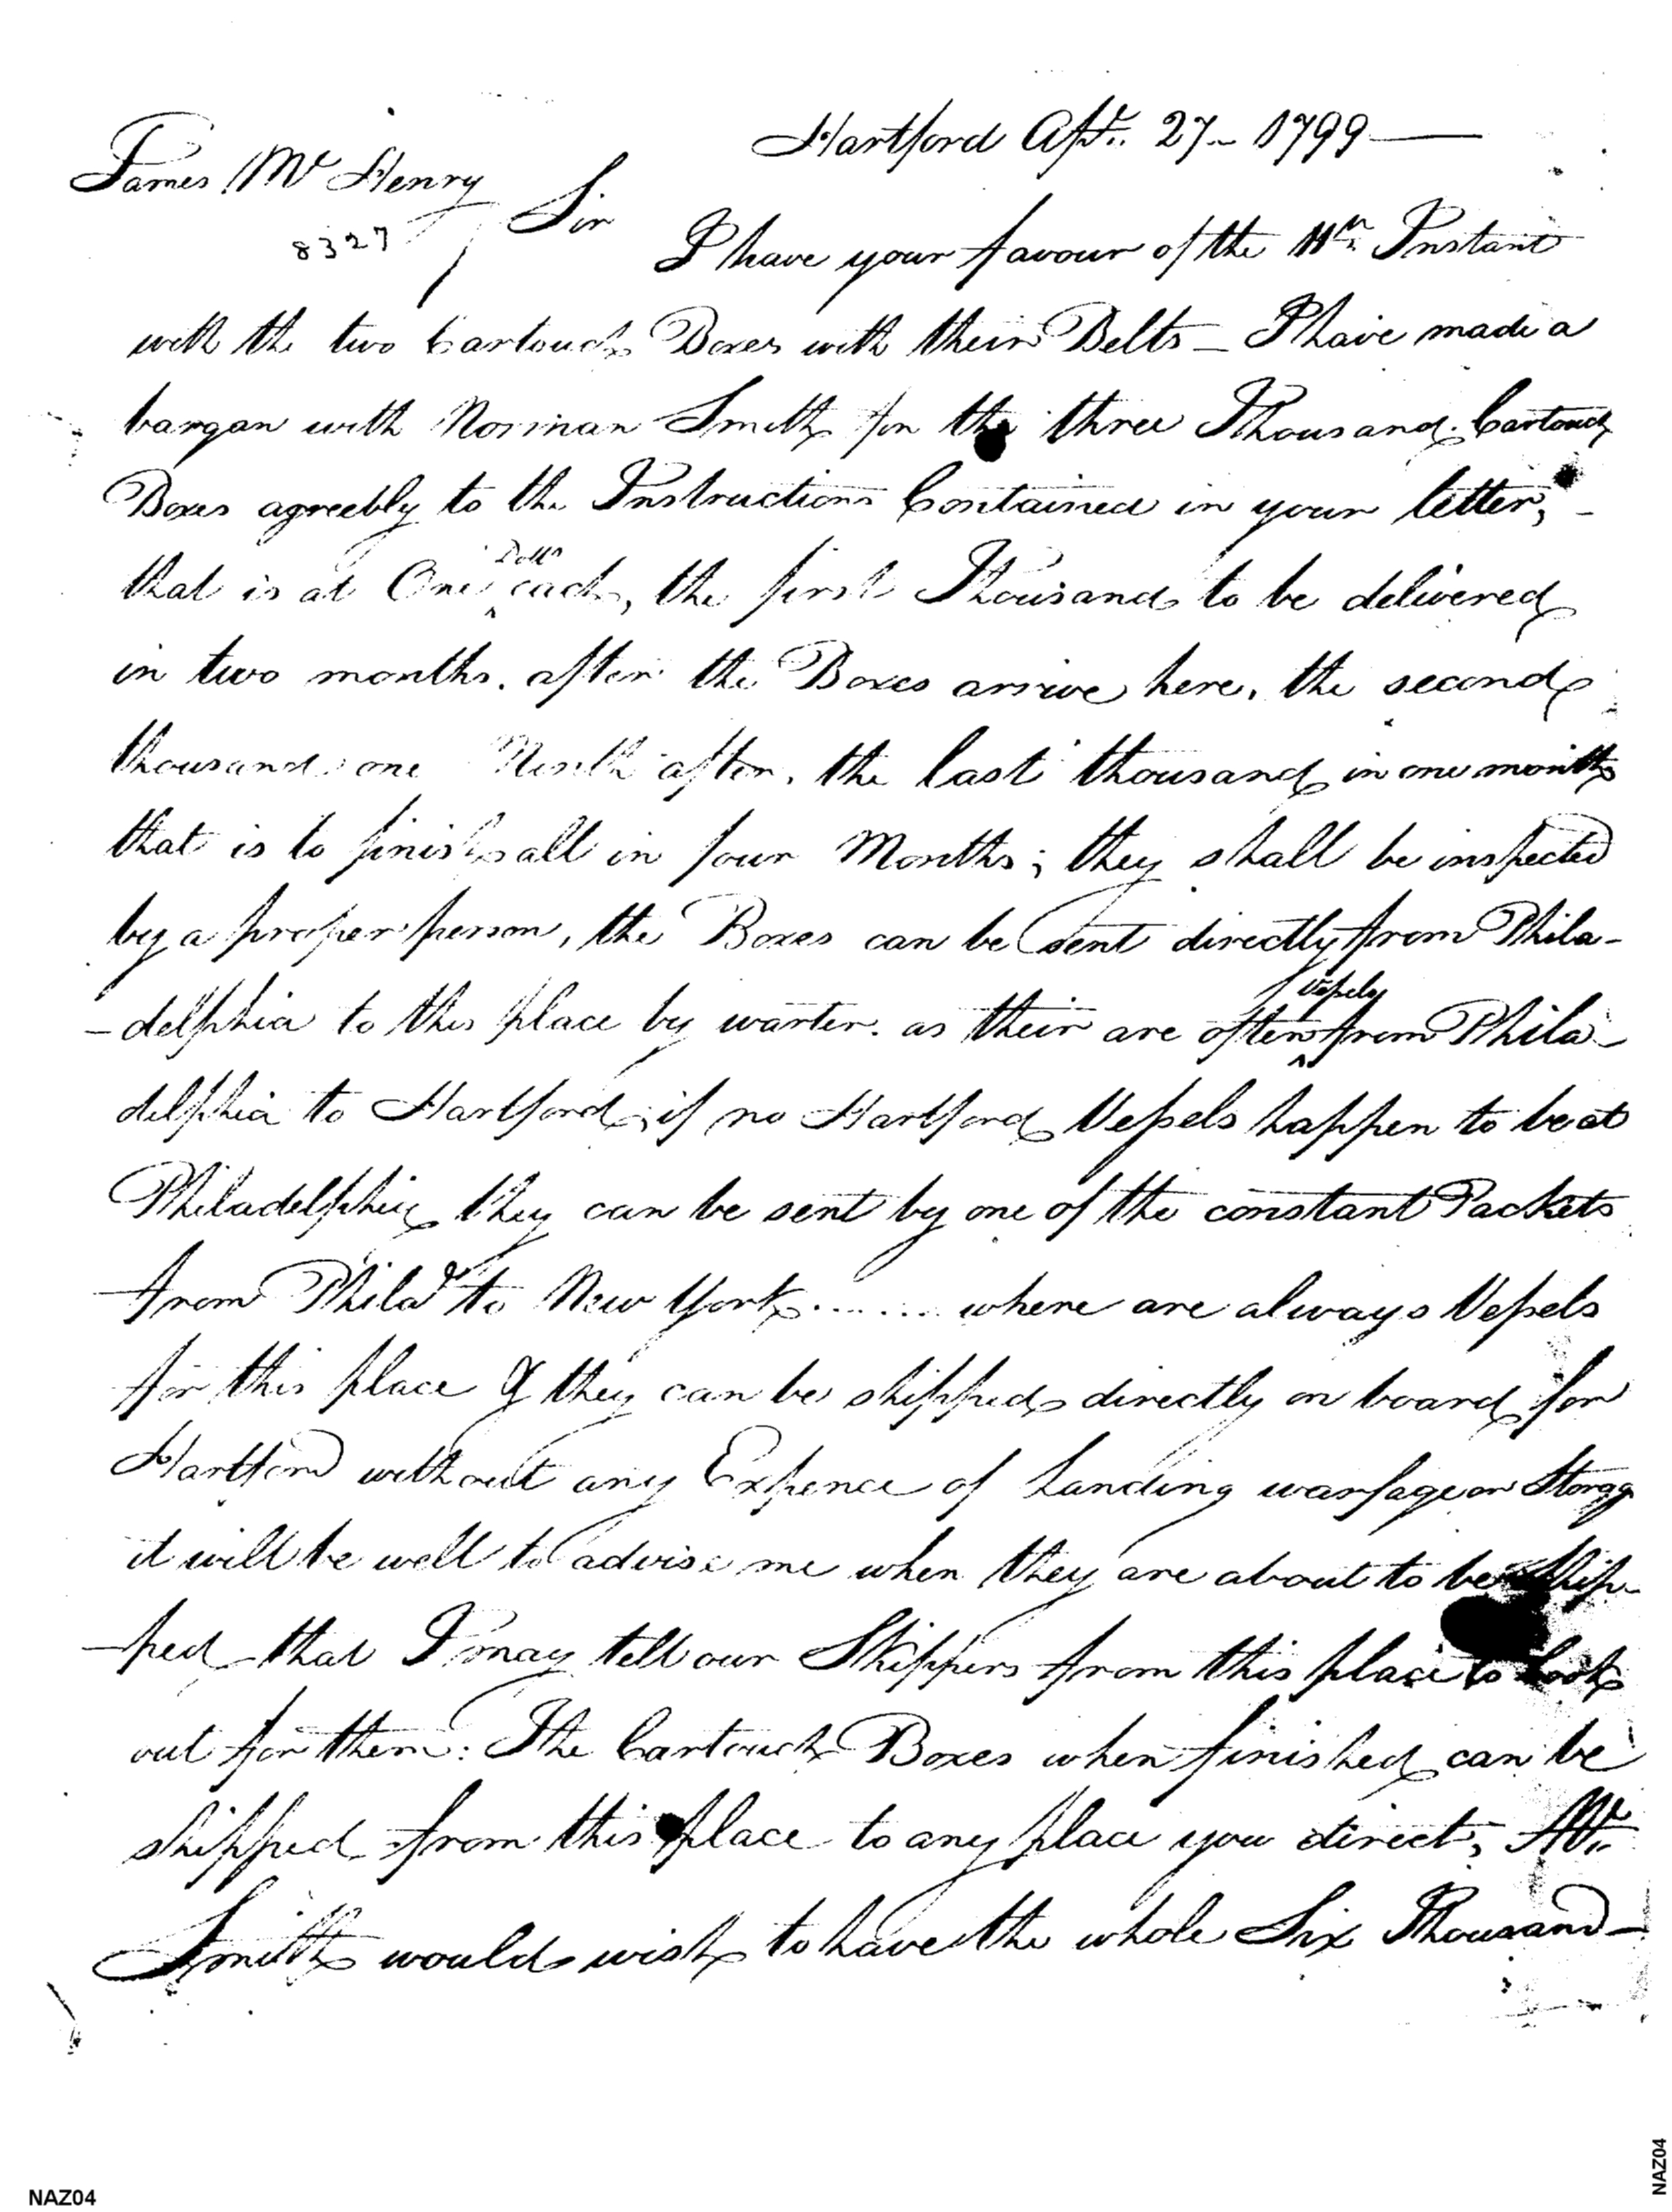 Hartford Apr. 27 - 1799 —
James McHenry
8327
Sir
I have your favour of the 11th Instant
with the two Cartouch Boxes with their Belts — I have made a
bargan with Norman Smith for the three Thousand Cartouch
Boxes agreebly to the Instructions Contained in your letter, -
that is at One Doll each, the first Thousand to be delivered
in two months. after the Boxes arrive here, the second
thousand one Month after, the last thousand in one month
that is to finish all in four Months; they shall be inspected
by a proper person, the Boxes can be sent directly from Phila-
-delphia to this place by warter. as their are often Vessels from Phila-
delphia to Hartford, if no Hartford Vessels happen to be at
Philadelphia they can be sent by one of the constant Packets
from Philada to New York ...... where are always Vessels
for this place & they can be shipped directly on board for
Hartford without any Expence of Landing warfage or Storag
it will be well to advise me when they are about to be Ship-
-ped that I may tell our Skippers from this place to look
out for them: The Cartouch Boxes when finished can be
shipped from this place to any place you direct, Mr.
Smith would wish to have the whole Six Thousand -
NAZ04
NAZ04